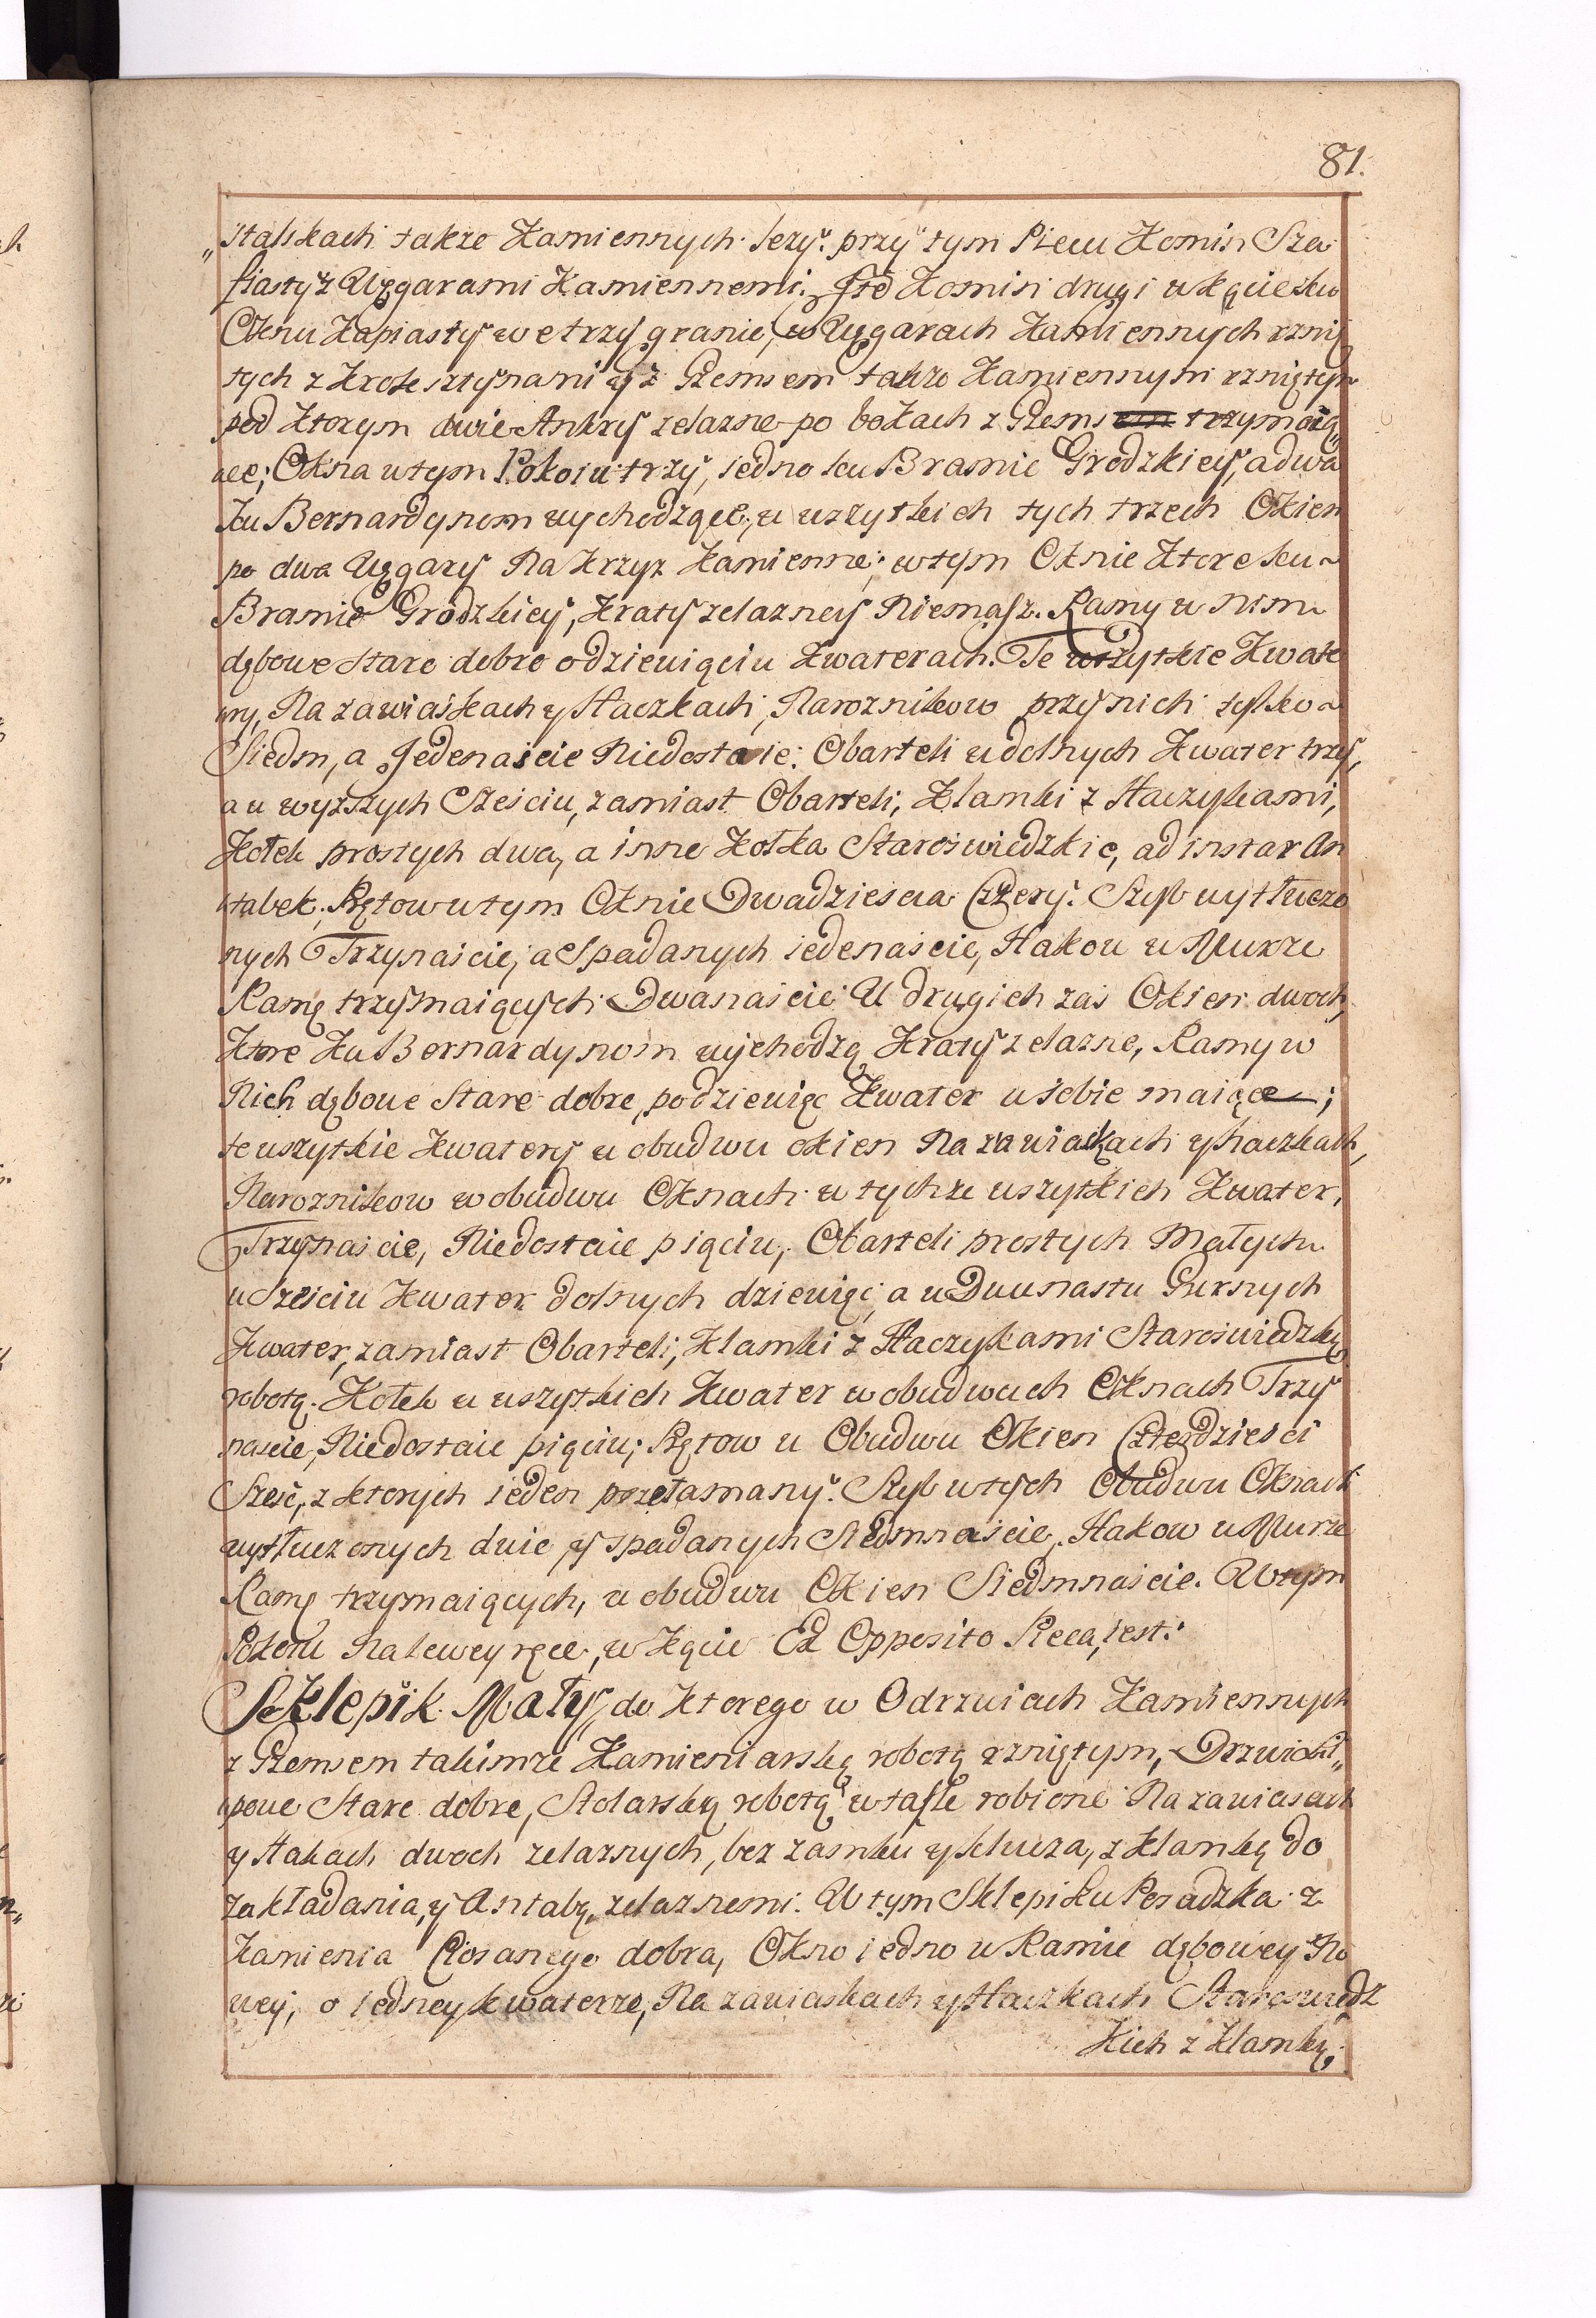 81.
„stalskach także Kamiennych leży: przy tym Piecu Komin Sza
fiasty z Węgarami Kamiennemi. Jtẽ Komin drugi w kącie ku
Oknu Kapiasty we trzy granie, w Węgarach Kamiennych rznię
tych z Kroksztynami y z Gzemsem także Kamiennym rzniętym
pod Ktorym dwie Ankry zelazne po bokach z Gzems trzymaią„
ace; Okna w tym Pokoiu trzy, iedno ku Bramie Grodzkiey, a dwa
ku Bernardynom wychodzące, u wszytkich tych trzech Okien
po dwa Węgary Na Krzyz Kamienne; w tym Oknie Ktore ku
Bramie Grodzkiey, Kraty zelazney Niemasz. Ramy w Nim
dębowe stare dobre o dziewięciu Kwaterach. Te wszytkie Kwate
ry, Na zawiaskach y Haczkach, Naroznikow przy nich tylko
Siedm, a Jedenaście Niedostaie: Obarteli u dolnych Kwater trzy,
a u wyższych Sześciu, zamiast Obarteli, Klamki z Haczykami,
Kołek prostych dwa, a inne Kołka Staroświedzkie, ad instar An
tabek. Prętow w tym Oknie Dwadzieścia Cztery. Szyb wytłuczo
nych Trzynaście, a Spadanych iedenaście, Hakow w Murze
Ramę trzymaiących Dwanaście. U drugich zaś Okien dwoch,
Ktore Ku Bernardynom wychodzą Kraty zelazne, Ramy w
Nich dębowe Stare dobre, po dziewięć Kwater w sobie maiące;
te wszytkie Kwatery u obudwu okien Na zawiaskach y haczkach,
Naroznikow w obudwu Oknach u tychze wszytkich Kwater,
Trzynaście, Niedostaie pięciu, Obarteli prostych Małych
u Sześciu Kwater dolnych dziewięć, a u Dwunastu Gurnych
Kwater, zamiast Obarteli, Klamki z Haczykami Staroświedzką
robotą. Kołek u wszytkich Kwater w obudwuch Oknach Trzy
naście, Niedostaie pięciu; Prętow u Obudwu Okien Czterdzieści
Sześć, z ktorych ieden przełamany. Szyb w tych Obudwu Oknach
wytłuczonych dwie y spadanych Siedmnaście, Hakow w Murze
Ramę trzymaiących, u obudwu Okien Siedmnaście. W tym
Pokoiu Na lewey ręce, w Kącie Ex Opposito Pieca, iest:
Sklepik Mały, do Ktorego w Odrzwiach Kamiennych
z Gzemsem takimze Kamieniarską robotą rzniętym, Drzwi Li„
powe Stare dobre, Stolarską robotą w tafle robione Na zawiasach
y Hakach dwoch zelaznych, bez zamku y klucza, z klamką do
zakładania, y Antabą zelaznemi. W tym Sklepiku Posadzka z
Kamienia Ciosanego dobra, Okno iedno w Ramie dębowey No
wey, o iedney kwaterze, Na zawiaskach y Haczkach Staroswiedz
Kich z Klamką,